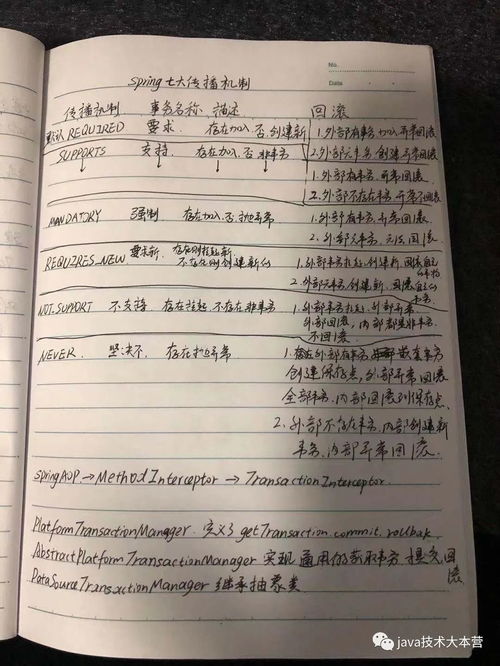 No.
Date
spring七大传播机制
传播机制 事务名称 描述 回滚
默认REQUIRED 要求 存在加入,否,创建新 1.外部有事务 加入 异常回滚
2.外部无事务 创建 异常回滚
SUPPORTS 支持 存在加入,否 非事务 1.外部有事务 异常回滚
2.外部不存在事务 异常不回滚
MANDATORY 强制 存在加入,否 抛异常 1.外部有事务 异常回滚
2.外部无事务 无法回滚
REQUIRES_NEW 要求新 存在则挂起新 1.外部事务挂起,创建新,回滚
不存在则创建新的 2.外部无事务,创建新,回滚
NOT_SUPPORT 不支持 存在挂起 不存在非事务 1.外部事务挂起,外部异常
外部回滚,内部都是非事务
不回滚
NEVER 坚决不 存在抛异常 1.外部有事务 嵌套事务
创建保存点,外部异常回滚
全部事务,内部回滚到保存点.
2.外部不存在事务,内部创建新
事务,内部异常回滚.
springAOP→MethodInterceptor→TransactionInterceptor.
PlatformTransactionManager.定义了getTransaction commit rollbak.
AbstractPlatformTransactionManager 实现 通用的获取事务 提交 回滚
DataSourceTransactionManager 继承抽象类
java技术大本营